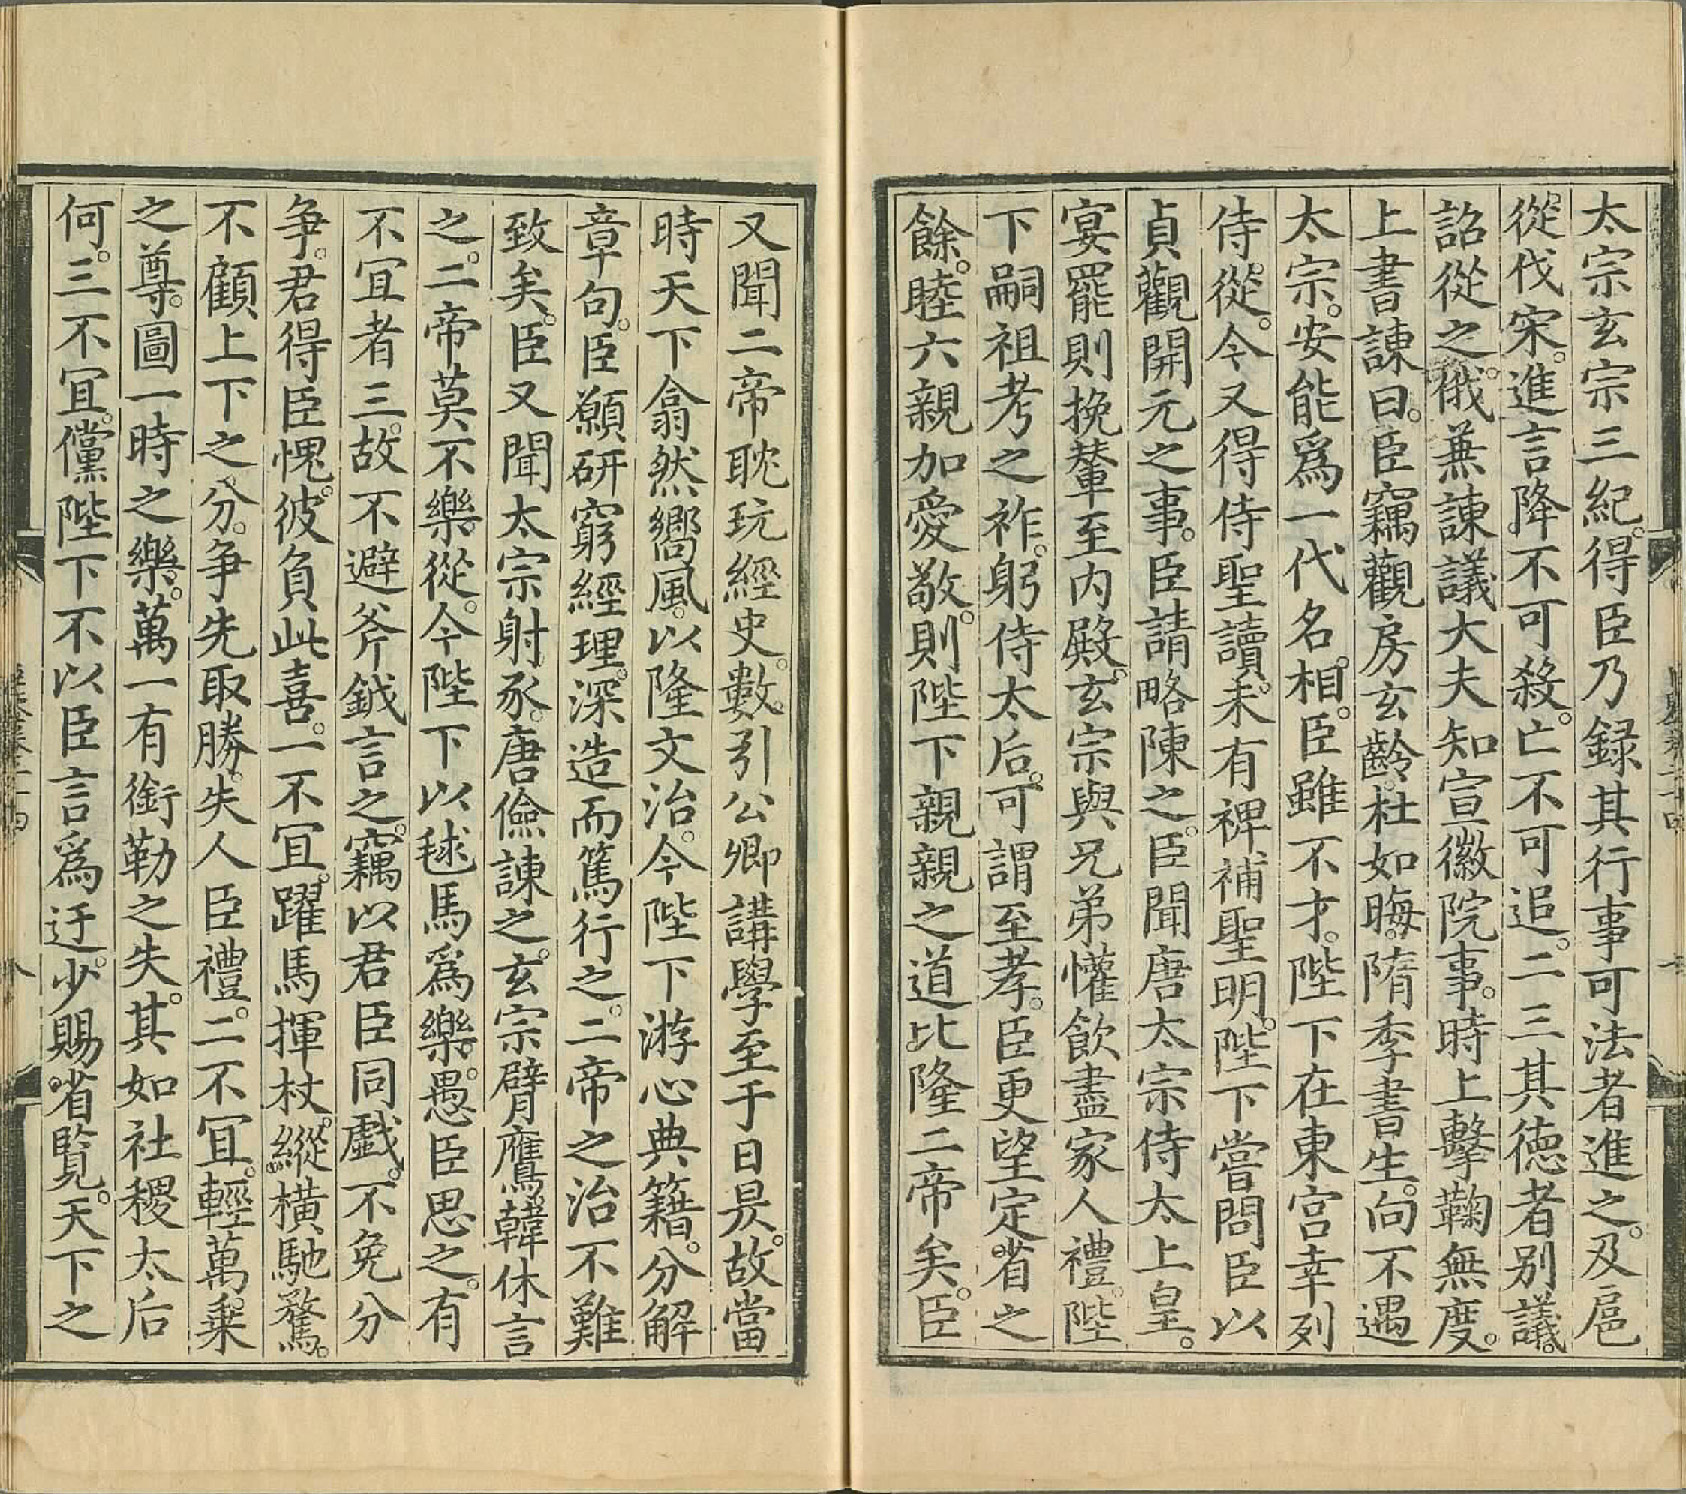 太宗玄宗三紀得臣乃録其行事可法者進之及扈
從伐宋進言降不可殺亡不可追二三其徳者别議
詔從之俄兼諫議大夫知宣徽院事時上擊鞠無度
上書諫曰臣竊觀房玄齡杜如晦隋季書生向不遇
太宗安能爲一代名相臣雖不才陛下在東宫幸列
侍從今又得侍聖讀未有裨補聖明陛下嘗問臣以
貞觀開元之事臣請略陳之臣聞唐太宗侍太上皇
宴罷則挽輦至内殿玄宗與兄弟懽飲盡家人禮陛
下嗣祖考之祚躬侍太后可謂至孝臣更望定省之
餘睦六親加愛敬則陛下親親之道比隆二帝矣臣
又聞二帝耽玩經史數引公卿講學至于日昃故當
時天下翕然嚮風以隆文治今陛下游心典籍分解
章句臣願研窮經理深造而篤行之二帝之治不難
致矣臣又聞太宗射豕唐儉諫之玄宗臂鷹韓休言
之二帝莫不樂從今陛下以毬馬爲樂愚臣思之有
不冝者三故不避斧鉞言之竊以君臣同戯不免分
争君得臣愧彼負此喜一不冝躍馬揮杖縱横馳騖
不顧上下之分争先取勝失人臣禮二不冝輕萬乗
之尊圖一時之樂萬一有銜勒之失其如社稷太后
何三不冝儻陛下不以臣言爲迂少賜省覧天下之